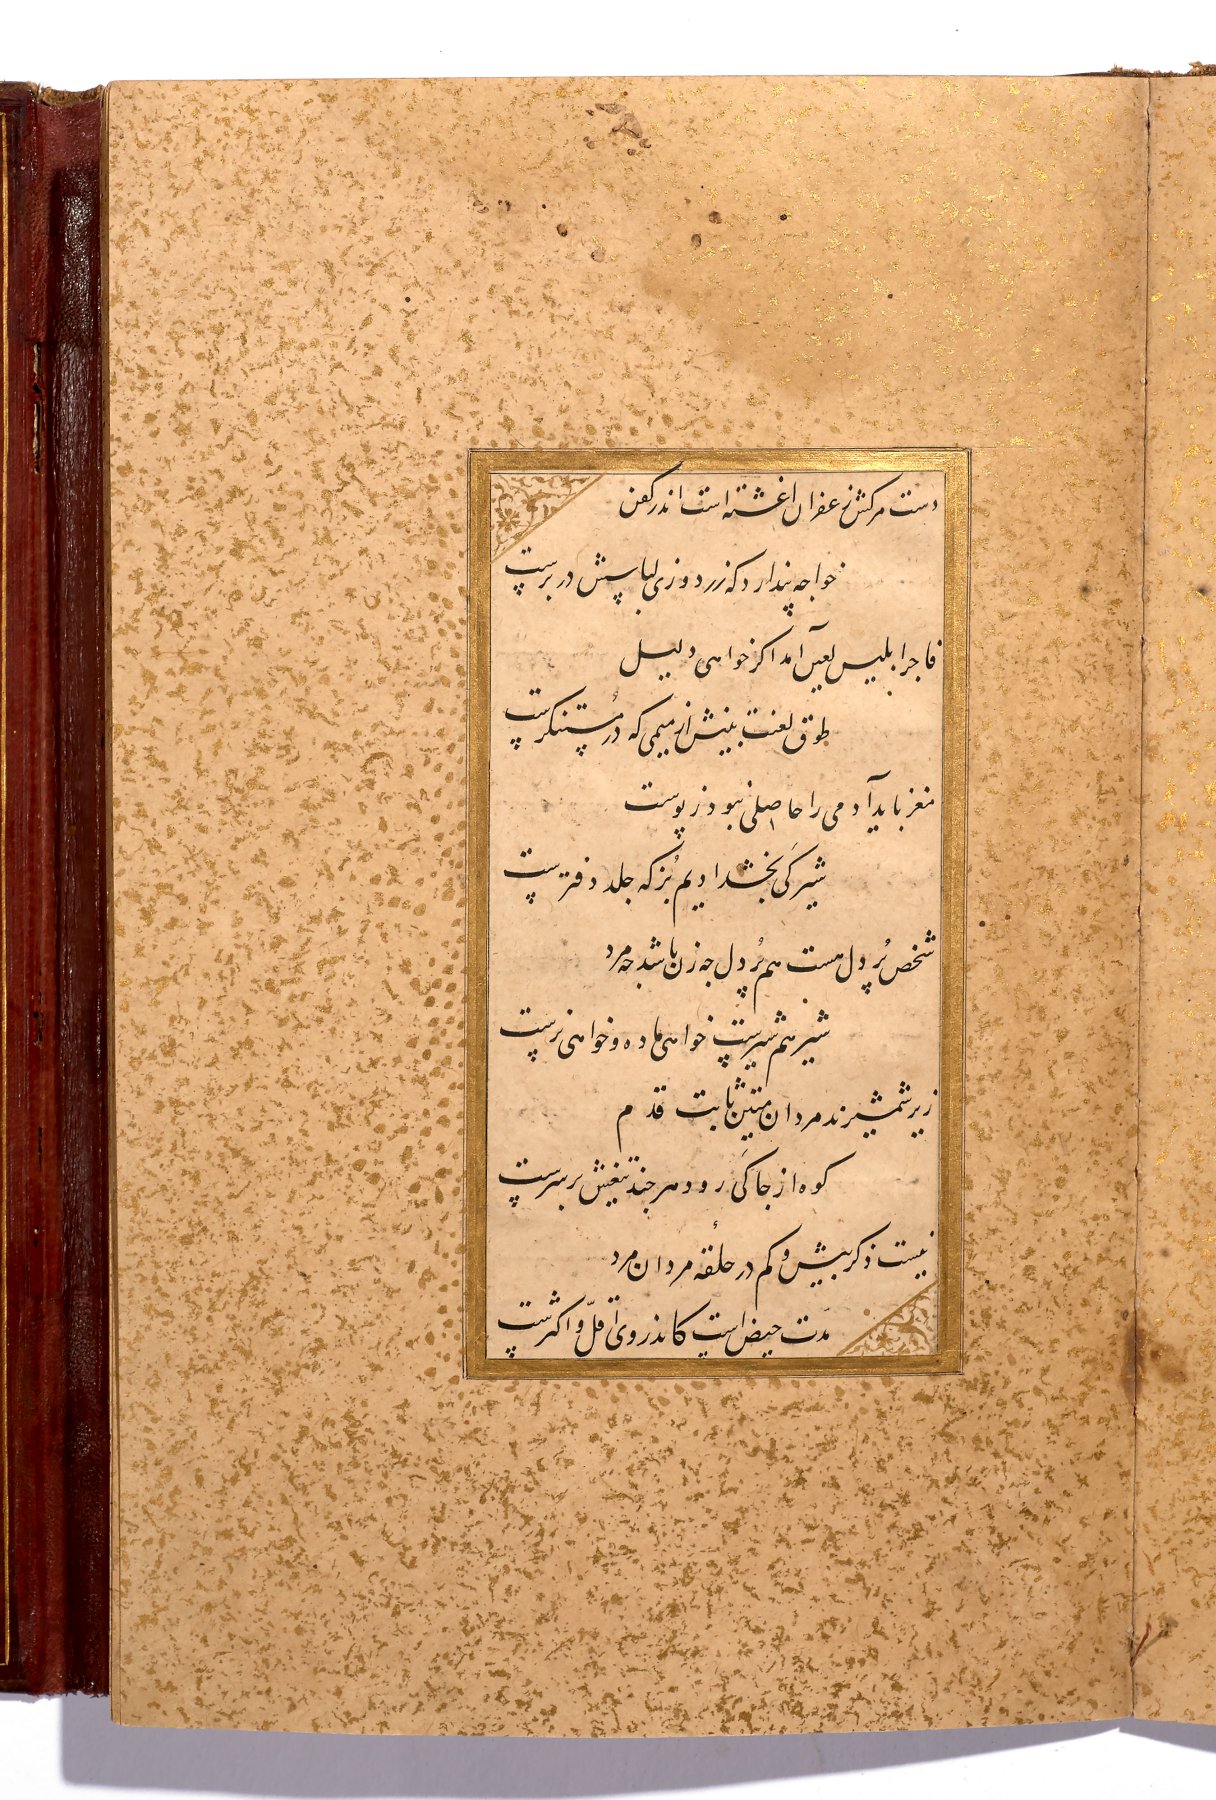 دست مرکش زعفران اغشته است اندر کفن
خواجه پندارد که زردوزی لباسش در برست
فاجر ابلیس لعین آمد اکر خواهی دلیل
طوق لعنت بینش از میمی که در مستنکرست
مغز باید آدمی را حاصلی نبود ز پوست
شیر کی بخشد ادیم بز که جلد دفترست
شخص پر دل هست هم پر دل جه زن باشد جه مرد
شیر هم شیرست خواهی ماده و خواهی نرست
زیر شمشیرند مردان متین ثابت قدم
کوه از جا کی رود هر جند تیغش بر سرست
نیست ذکر بیش و کم در حلقه مردان مرد
مدت حیض است کاندر وی اقلّ و اکثرست